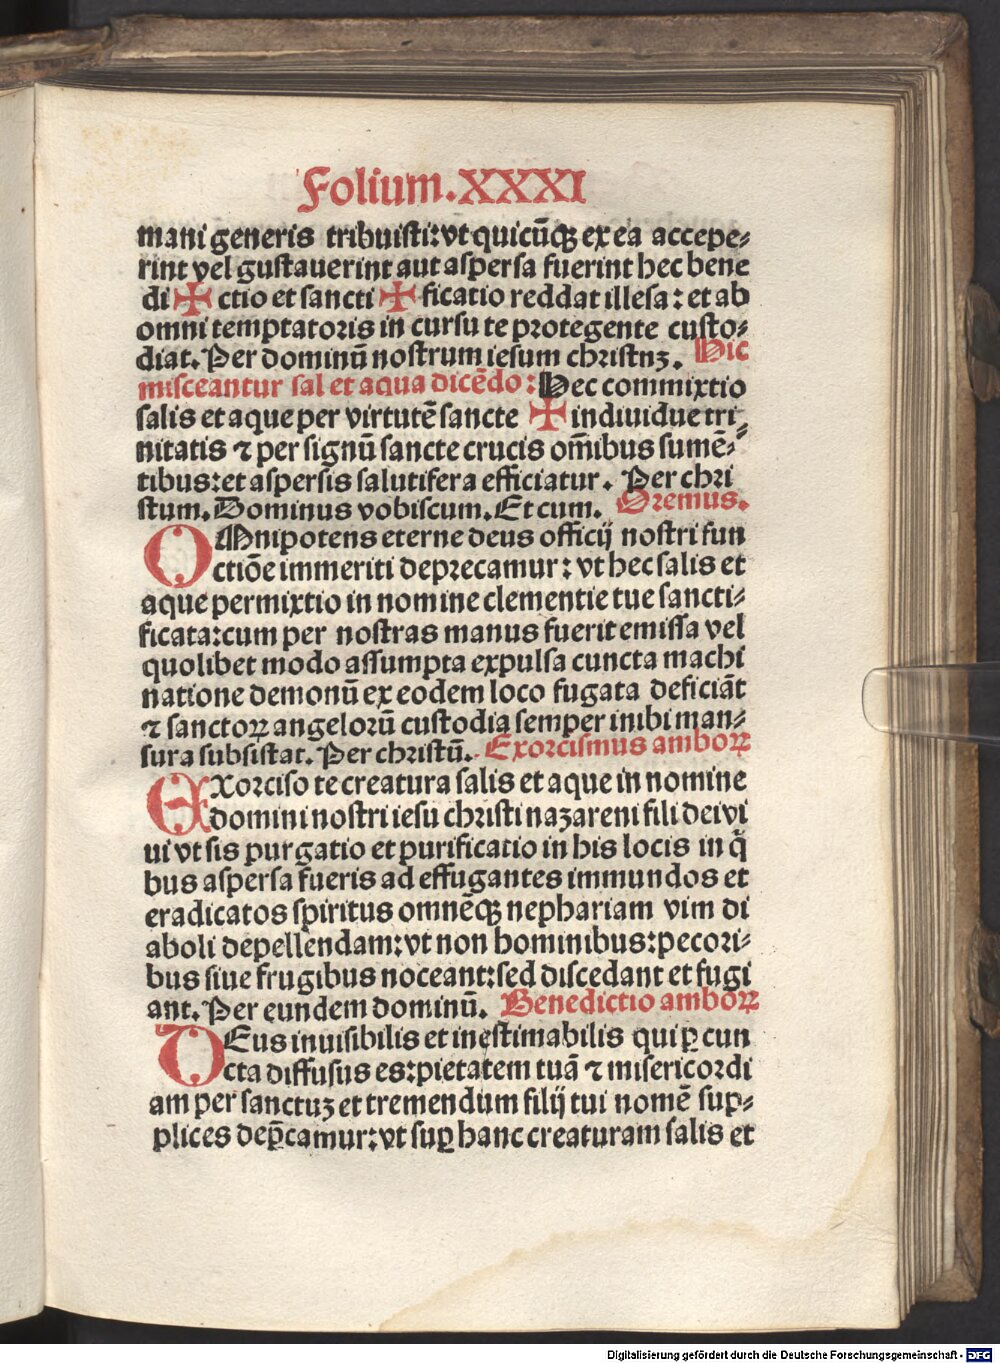 Folium.XXXI
mani generis tribuisti: vt quicũqꝫ ex ea accepe⸗
rint vel gustauerint aut aspersa fuerint hec bene
di ✠ ctio et sancti ✠ ficatio reddat illesa: et ab
omni temptatoris in cursu te protegente custo⸗
diat. Per dominũ nostrum iesum christnꝫ. Hic
misceantur sal et aqua dicẽdo: Hec commixtio
salis et aque per virtutẽ sancte ✠ indiuidue tri⸗
nitatis ⁊ per signũ sancte crucis om̃ibus sumẽ⸗
tibus: et aspersis salutifera efficiatur. Per chri
stum. Dominus vobiscum. Et cum. Oremus.
OMnipotens eterne deus officij nostri fun
ctiõe immeriti deprecamur: vt hec salis et
aque permixtio in nomine clementie tue sancti⸗
ficata: cum per nostras manus fuerit emissa vel
quolibet modo assumpta expulsa cuncta machi
natione demonũ ex eodem loco fugata deficiãt
⁊ sanctoꝝ angelorũ custodia semper inibi man⸗
sura subsistat. Per christũ. Exorcismus amboꝝ
EXorciso te creatura salis et aque in nomine
domini nostri iesu christi nazareni fili dei vi
ui vt sis purgatio et purificatio in his locis in q̃
bus aspersa fueris ad effugantes immundos et
eradicatos spiritus omnẽqꝫ nephariam vim di
aboli depellendam: vt non hominibus: pecori⸗
bus siue frugibus noceant: sed discedant et fugi
ant. Per eundem dominũ. Benedictio amboꝝ
DEus inuisibilis et inestimabilis qui ꝑ cun
cta diffusus es: pietatem tuã ⁊ misericordi
am per sanctuꝫ et tremendum filij tui nomẽ sup⸗
plices dep̃camur: vt suꝑ hanc creaturam salis et
Digitalisierung gefördert durch die Deutsche Forschungsgemeinschaft - DFG